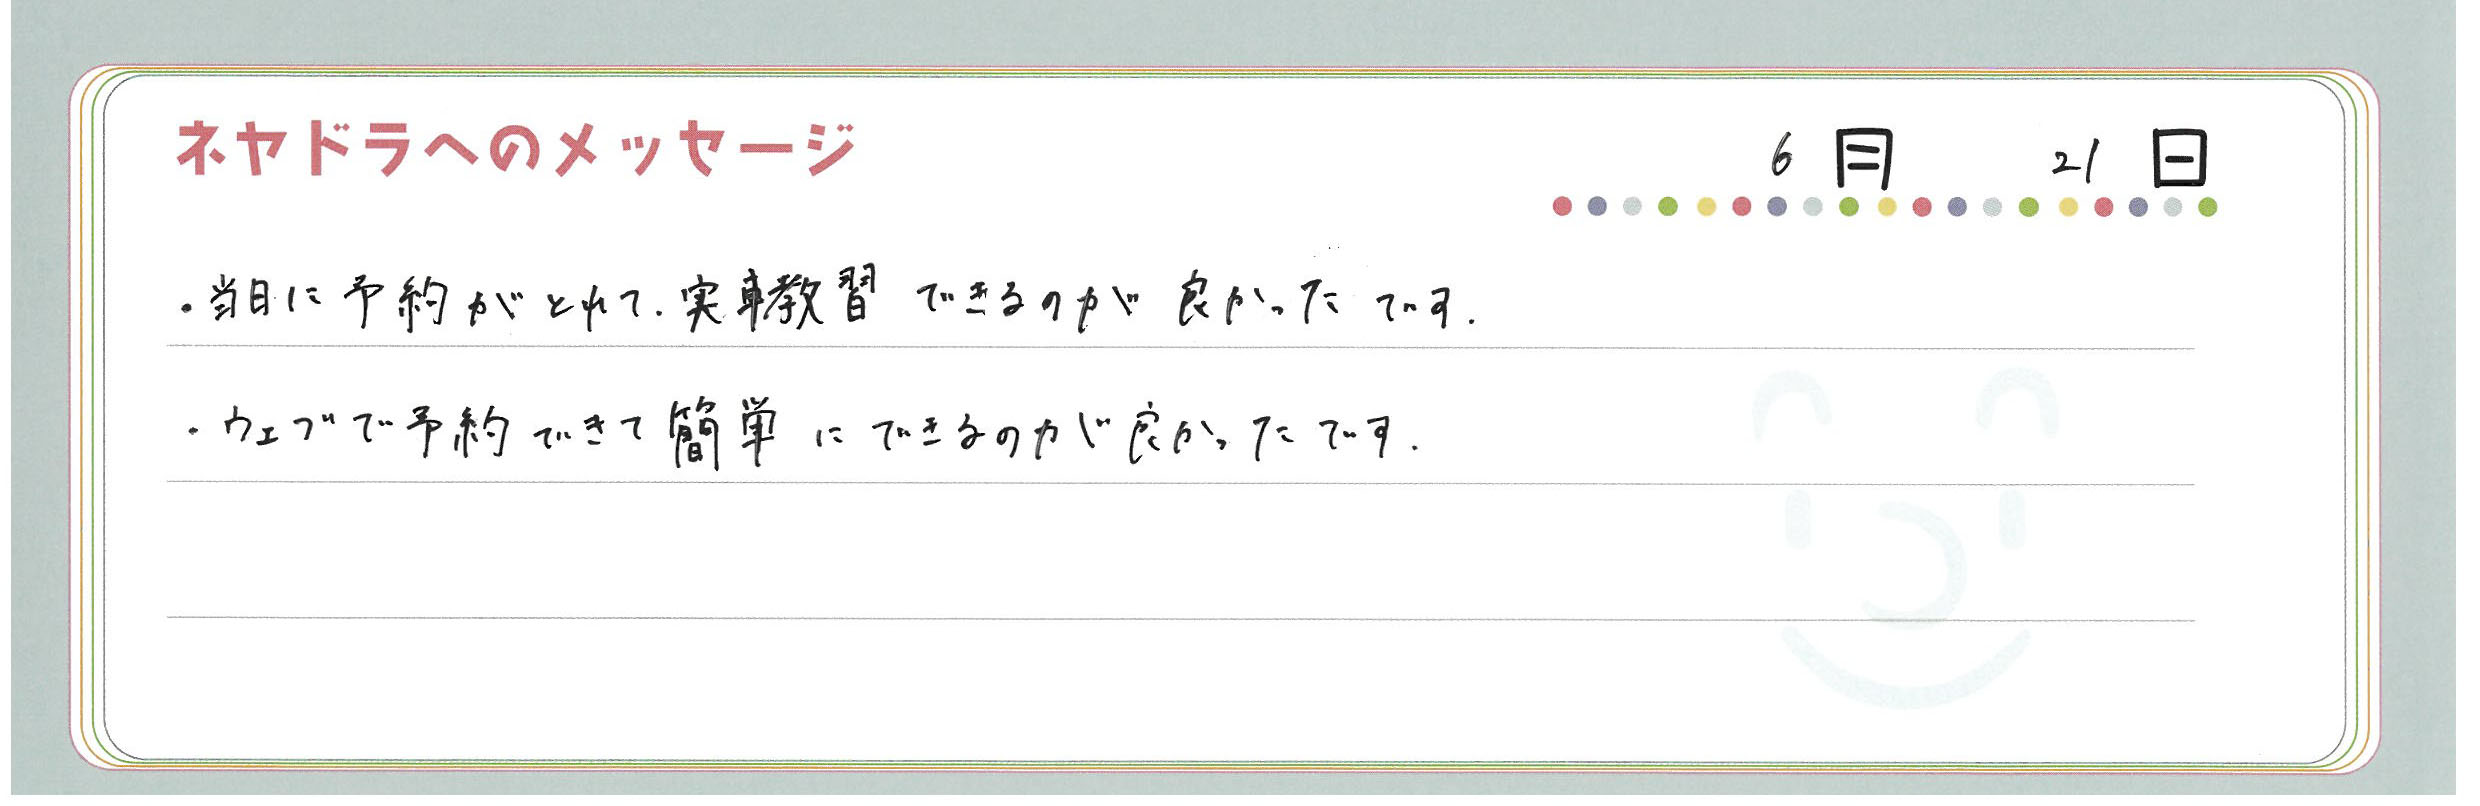 ネヤドラへのメッセージ
6月 21日
・当日に予約がとれて.実車教習できるのが良かったです.
・ウェブで予約できて簡単にできるのが良かったです.